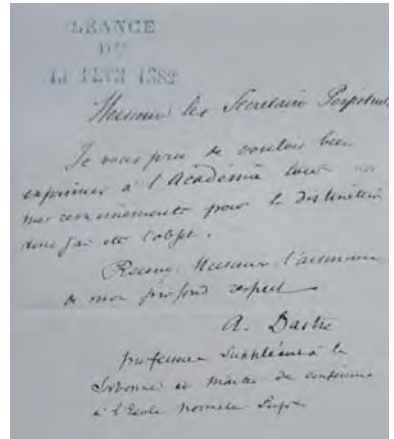 SÉANCE
DU
13 FEVR 1882
Monsieur les Secretaire Perpetuel,
Je vous prie de vouloir bien
exprimer à l'Académie tous
mes remerciements pour la distinction
dont j'ai été l'objet.
Recevez, Monsieur, l'assurance
de mon profond respect
A. Dastre
professeur Suppléant à la
Sorbonne et maître de conférence
à l'Ecole normale Supre